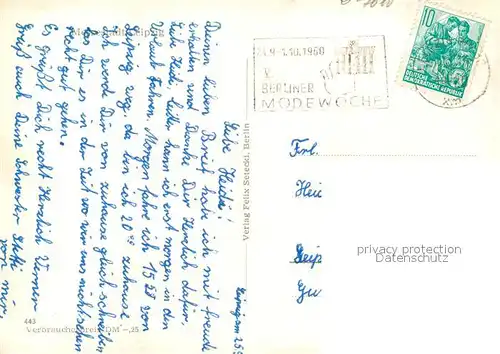 Messestadt Leipzig
Leipzig am 25.9
Liebe Heidi!
Deinen lieben Brief habe ich mit Freude
erhalten und Danke Dir Herzlich dafür.
Liebe Heidi, leider kann ich erst morgen in den
Urlaub Fahren. Morgen fahre ich 15 28 von
Leipzig weg, da bin ich 20 zuhause
Ich werde Dir von zuhause gleich schreiben
Dir es in der Zeit wo wir uns nicht sehen
recht gut gehen.
Es grüßt Dich recht Herzlich Werner
Grüß auch Deine Schwester
von mir.
443
Verbraucherpreis DM -,25
Verlag Felix Setecki, Berlin
1.10.1960
V.
BERLINER
MODEWOCHE
10
DEUTSCHE
DEMOKRATISCHE REPUBLIK
Frl.
Hei
Leip
privacy protection
www.ansichtskartenversand.com